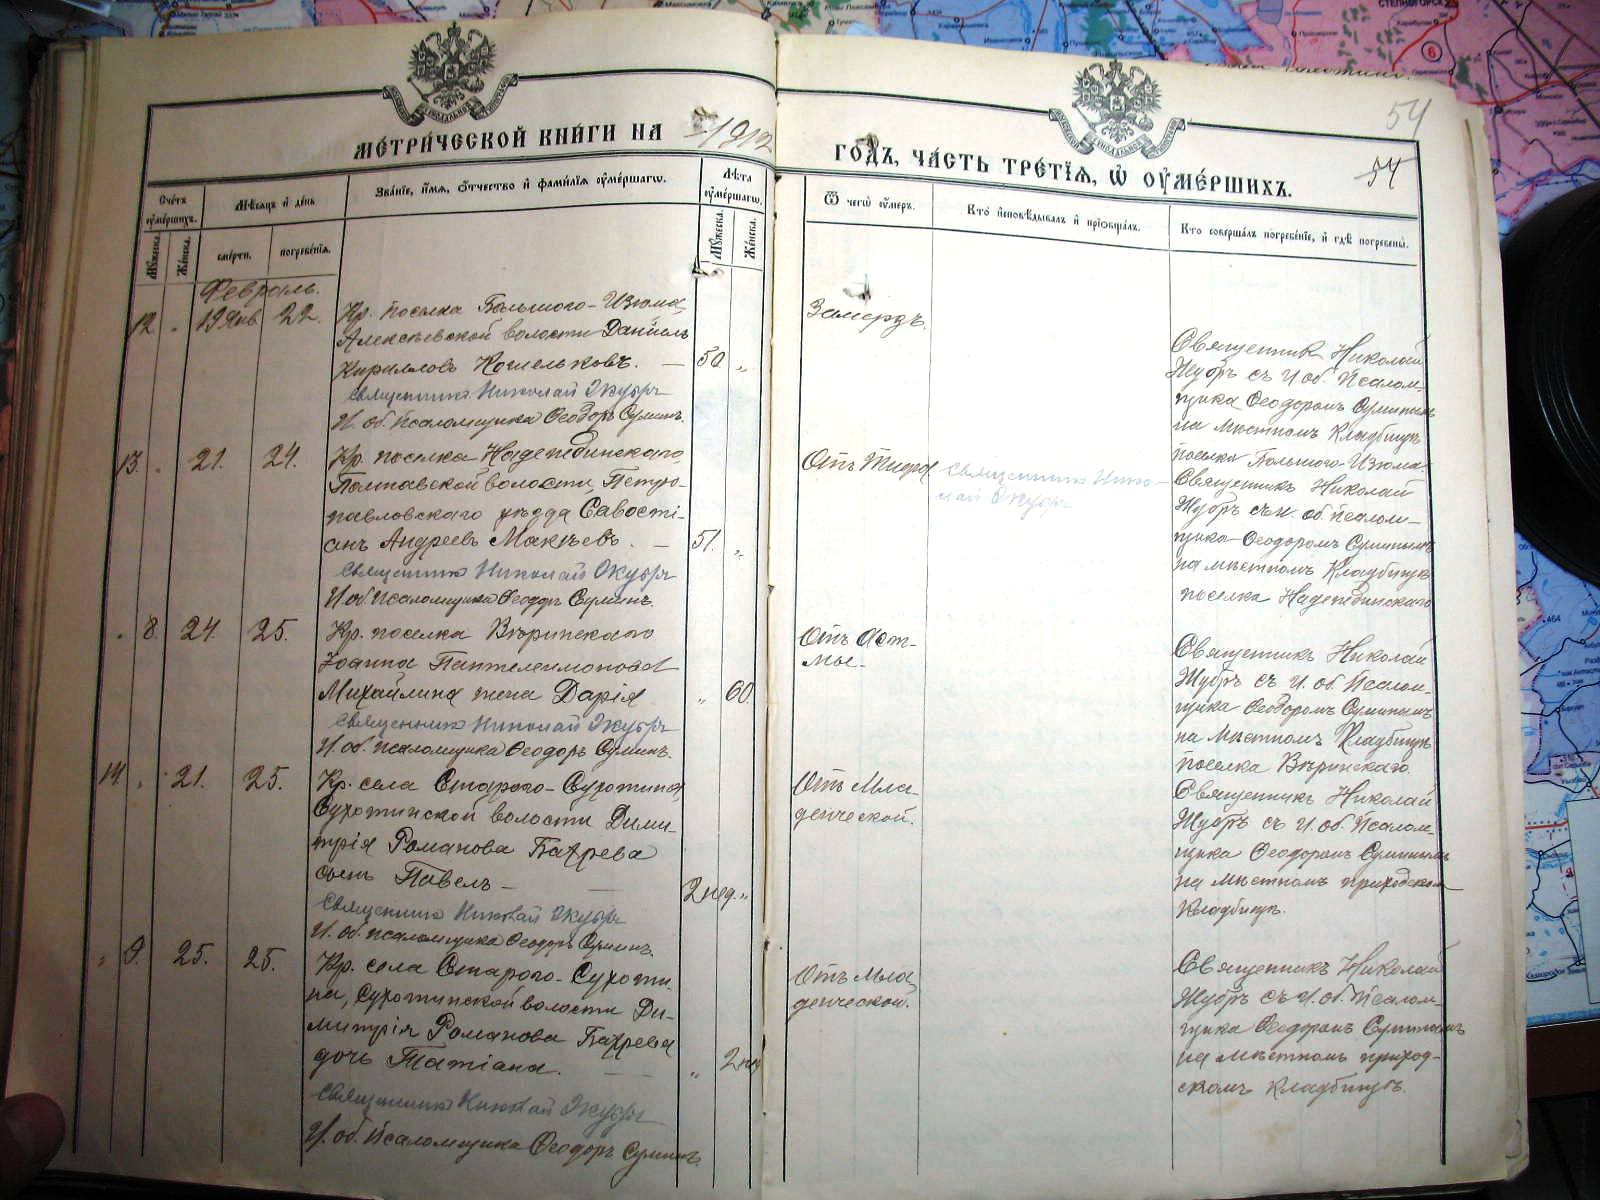 МЕТРИЧЕСКОЙ КНИГИ НА 1912
ГОДЪ, ЧАСТЬ ТРЕТІЯ, Ѿ ОУМЕРШИХЪ.
54
54
Счетъ оумершихъ.
Мѣсяцъ и день
Званіе, имя, отчество и фамилія оумершагѡ.
Лѣта оумершагѡ.
Мужеска.
Женска.
смерти.
погребенія.
Мужеска.
Женска.
Ѿ чегѡ оумеръ.
Кто исповѣдывалъ и пріобщалъ.
Кто совершалъ погребеніе, и гдѣ погребены.
Февраль.
12 „ 19 Янв. 22. Кр. поселка Большого-Изюма,
Алексѣевской волости Даніилъ
Кирилловъ Кошельковъ. — 50 „
Священникъ Николай Жубръ
И. об. псаломщика Ѳеодоръ Суминъ.
Замерзъ.
Священник Николай
Жубръ съ И. об. Псалом-
щика Ѳеодоромъ Суминымъ
на мѣстномъ Кладбищѣ
поселка Большого-Изюма
13. „ 21. 24. Кр. поселка Надеждинскаго,
Полтавской волости, Петро-
павловскаго уѣзда Савості-
анъ Андреевъ Макѣевъ. — 51. „
Священникъ Николай Жубръ
И об. Псаломщика Ѳеодоръ Суминъ.
Отъ Тифа
Священникъ Нико-
лай Жубръ
Священникъ Николай
Жубръ съ и. об. псалом-
щика Ѳеодоромъ Суминымъ
на мѣстномъ Кладбищѣ
поселка Надеждинскаго
„ 8. 24. 25. Кр. поселка Вѣринскаго
Іоанна Пантелеимонова
Михайлина жена Дарія „ 60.
Священникъ Николай Жубръ
И. об. псаломщика Ѳеодоръ Суминъ.
Отъ Аст-
мы.
Священникъ Николай
Жубръ съ И. об. Псалом-
щика Ѳеодоромъ Суминымъ
на мѣстномъ Кладбищѣ
поселка Вѣринскаго.
14 „ 21. 25. Кр. села Старого-Сухотина,
Сухотинской волости Дими-
трія Романова Бахрева
сынъ Павелъ — 2 нед. „
Священникъ Николай Жубръ
И. об. псаломщика Ѳеодоръ Суминъ.
Отъ Мла-
денческой.
Священникъ Николай
Жубръ съ И. об. Псалом-
щика Ѳеодоромъ Суминымъ
на мѣстномъ приходскомъ
Кладбищѣ.
„ 9. 25. 25. Кр. села Старого-Сухоти-
на, Сухотинской волости Ди-
митрія Романова Бахрева
дочь Татіана. „ 2 нед
Священникъ Николай Жубръ
И. об. Псаломщика Ѳеодоръ Суминъ.
Отъ Мла-
денческой.
Священникъ Николай
Жубръ съ И. об. Псалом-
щика Ѳеодоромъ Суминымъ
на мѣстномъ приход-
скомъ Кладбищѣ.